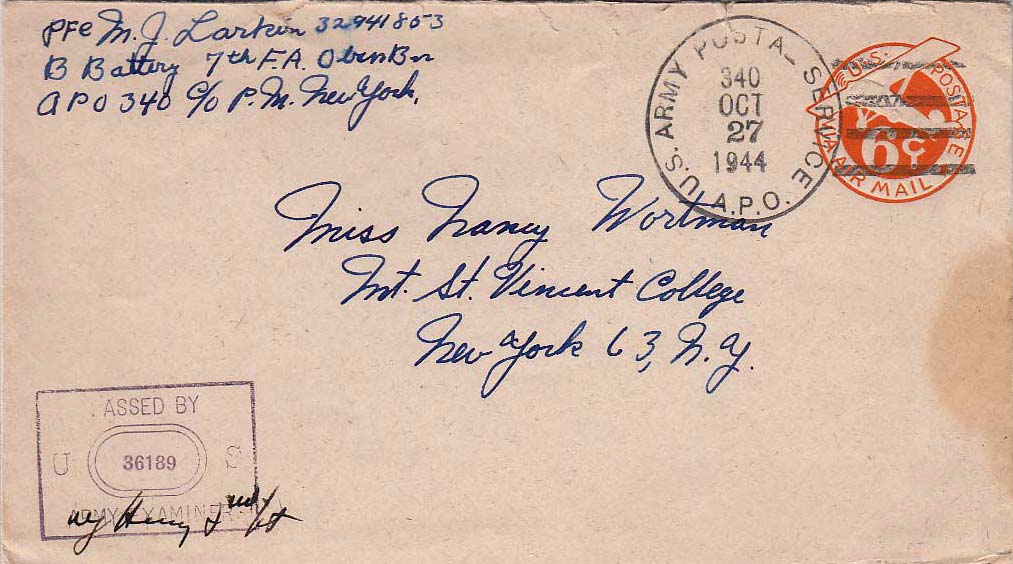 Pfc M. J. Larkin 32941853
B Battery 7th F.A. Obsn Bn
APO 340 c/o P.M. New York.
U.S. ARMY POSTAL SERVICE
340
OCT
27
1944
A.P.O.
U.S. POSTAGE
6¢
VIA AIR MAIL
Miss Nancy Wortman
Mt. St. Vincent College
New York 63, N.Y.
PASSED BY
U 36189 S
ARMY EXAMINER
Henry 2nd Lt